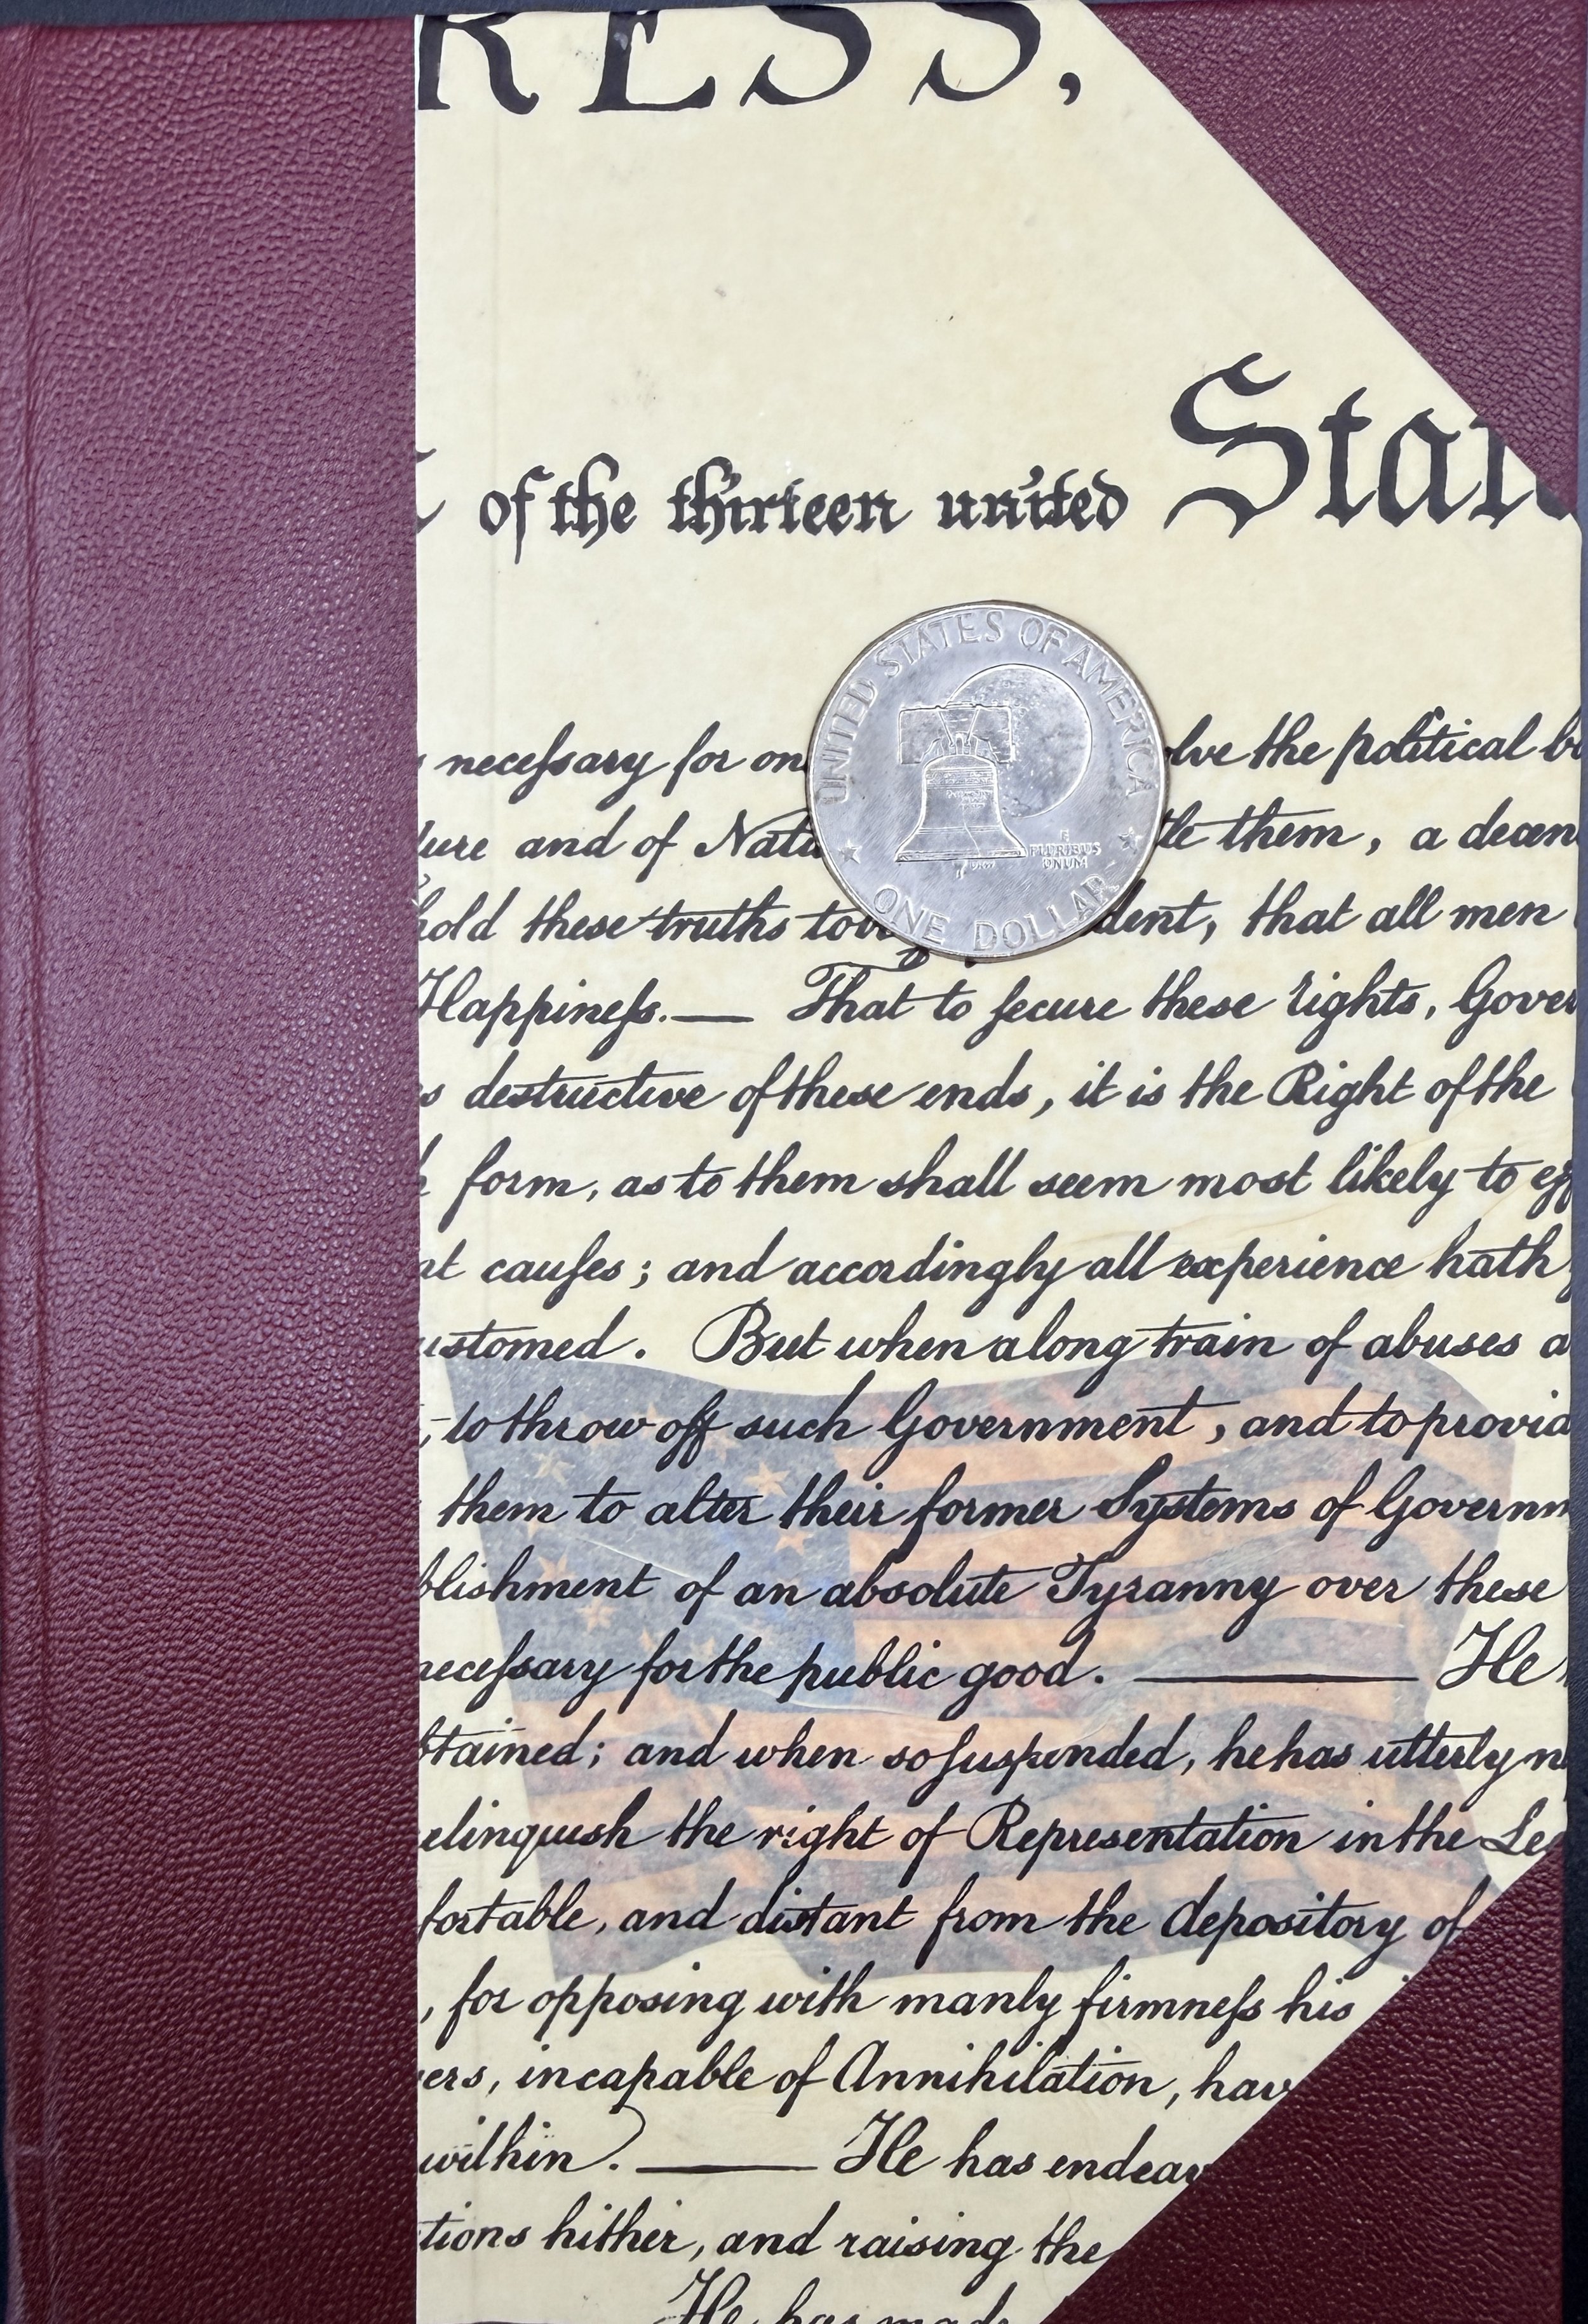 RESS,
of the thirteen united Stat
UNITED STATES OF AMERICA
E
PLURIBUS
UNUM
ONE DOLLAR
neceſsary for on lve the political b
ture and of Natu tle them, a decen
hold these truths to be dent, that all men
Happineſs.— That to ſecure these rights, Gover
s destructive of these ends, it is the Right of the
h form, as to them shall seem most likely to eff
nt cauſes; and accordingly all experience hath
ustomed. But when a long train of abuses a
, to throw off such Government, and to provid
them to alter their former Systems of Governm
blishment of an absolute Tyranny over these
neceſsary for the public good. — He
btained; and when so ſuspended, he has utterly n
elinquish the right of Representation in the Le
fortable, and distant from the depository of
, for opposing with manly firmneſs his
ers, incapable of Annihilation, hav
within. — He has endeav
tions hither, and raising the
He has made